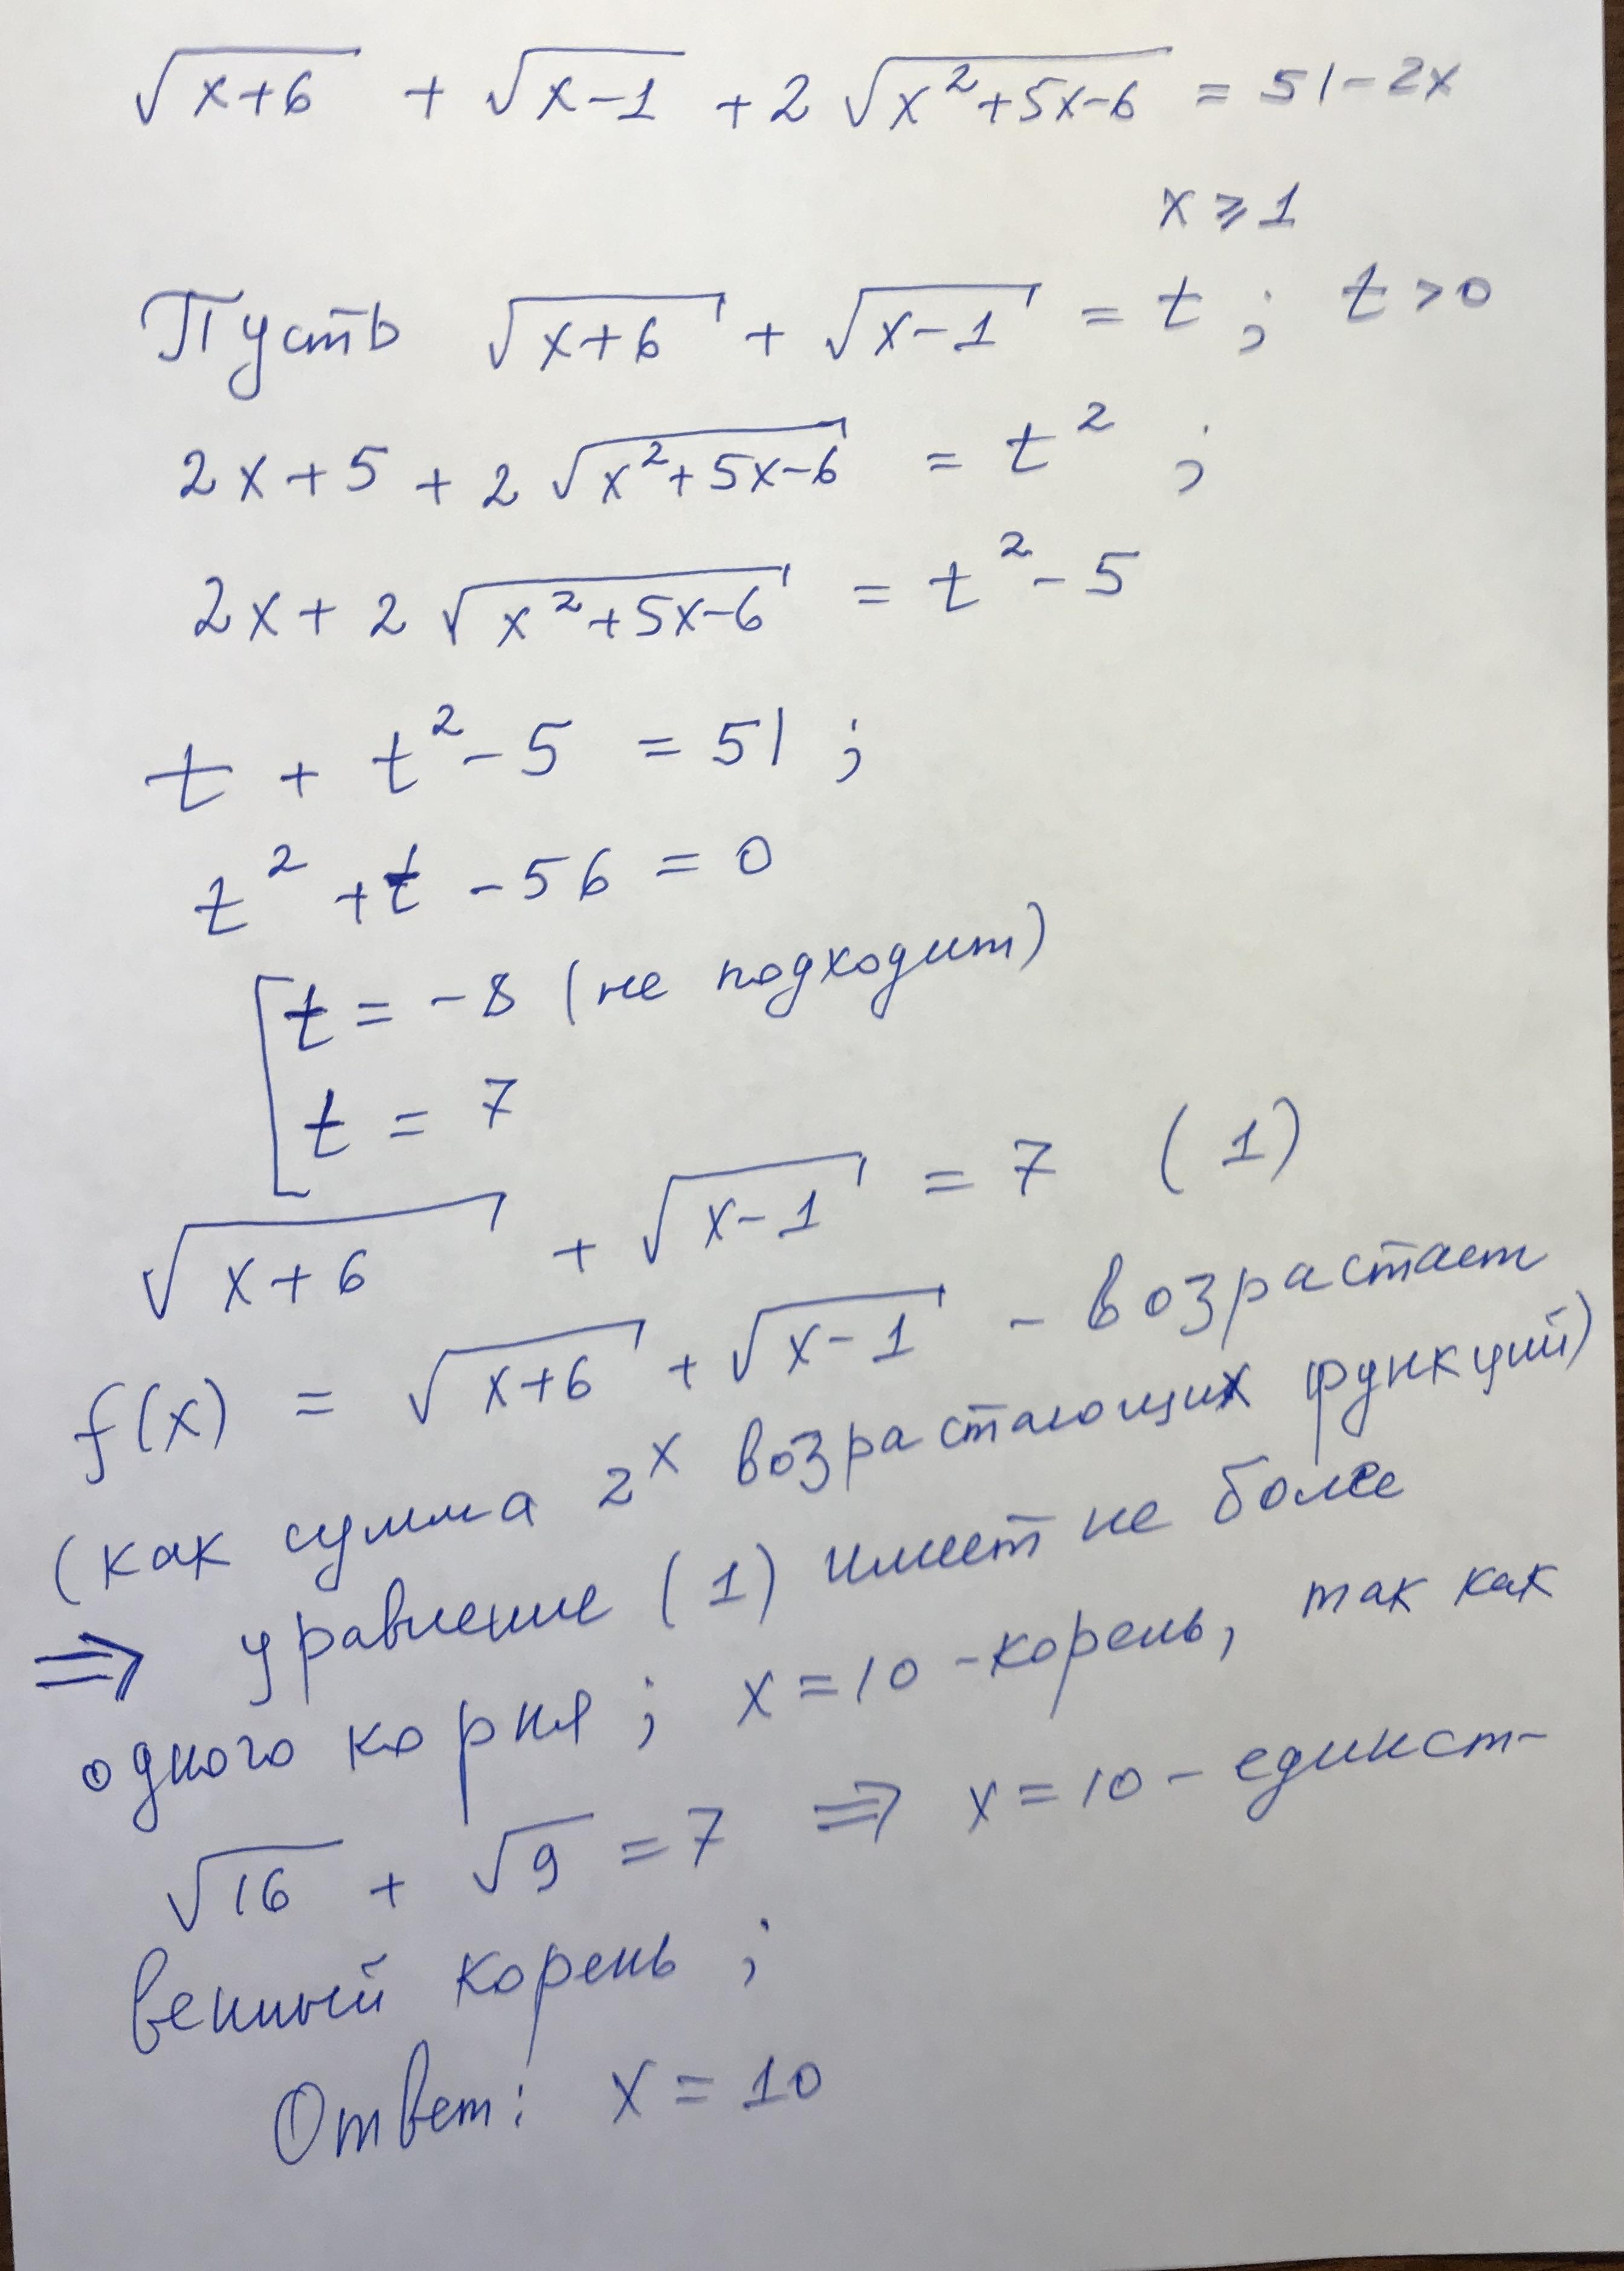 √(x+6) + √(x-1) + 2√(x²+5x-6) = 51-2x
x ⩾ 1
Пусть √(x+6) + √(x-1) = t ; t > 0
2x+5 + 2√(x²+5x-6) = t² ;
2x + 2√(x²+5x-6) = t² - 5
t + t² - 5 = 51 ;
t² + t - 56 = 0
[ t = -8 (не подходит)
t = 7
√(x+6) + √(x-1) = 7 (1)
f(x) = √(x+6) + √(x-1) - возрастает
(как сумма 2х возрастающих функций)
⇒ уравнение (1) имеет не более
одного корня ; x = 10 - корень, так как
√16 + √9 = 7 ⇒ x = 10 - единст-
венный корень ;
Ответ: x = 10